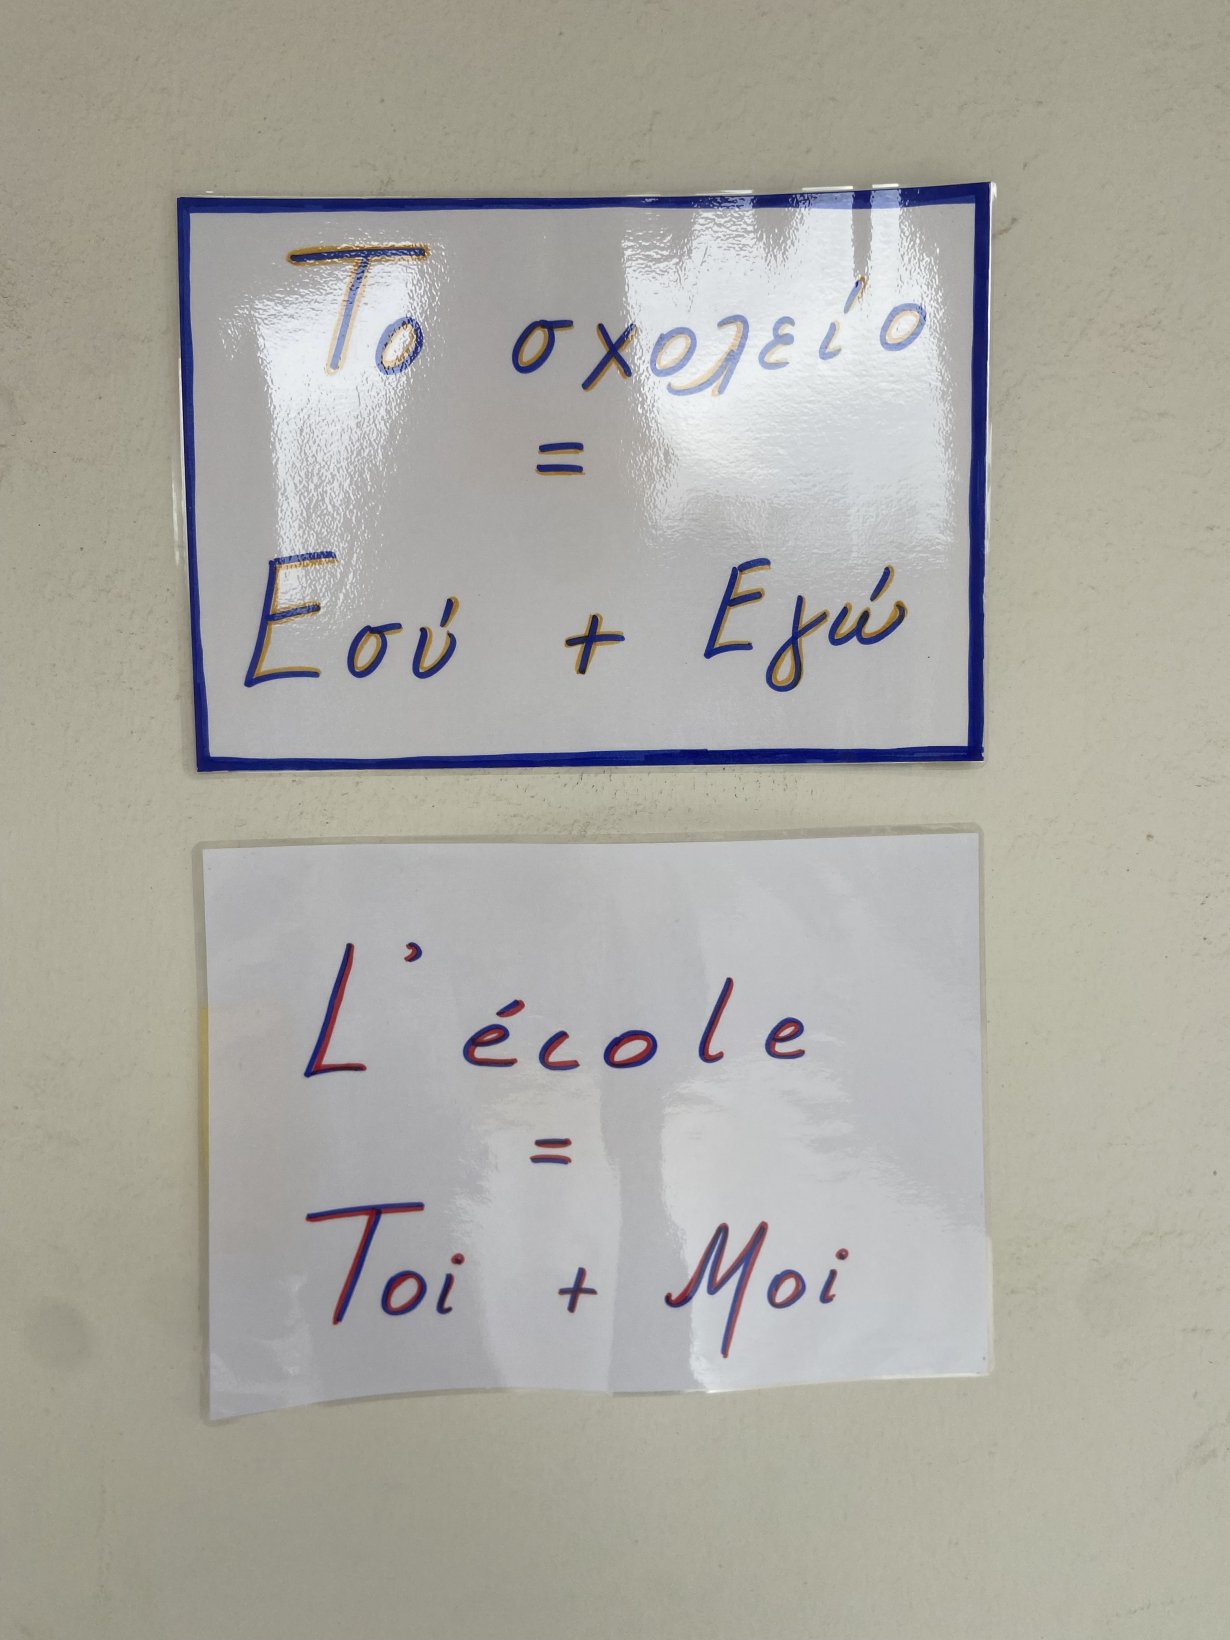 Το σχολείο
=
Εσύ + Εγώ
L'école
=
Toi + Moi